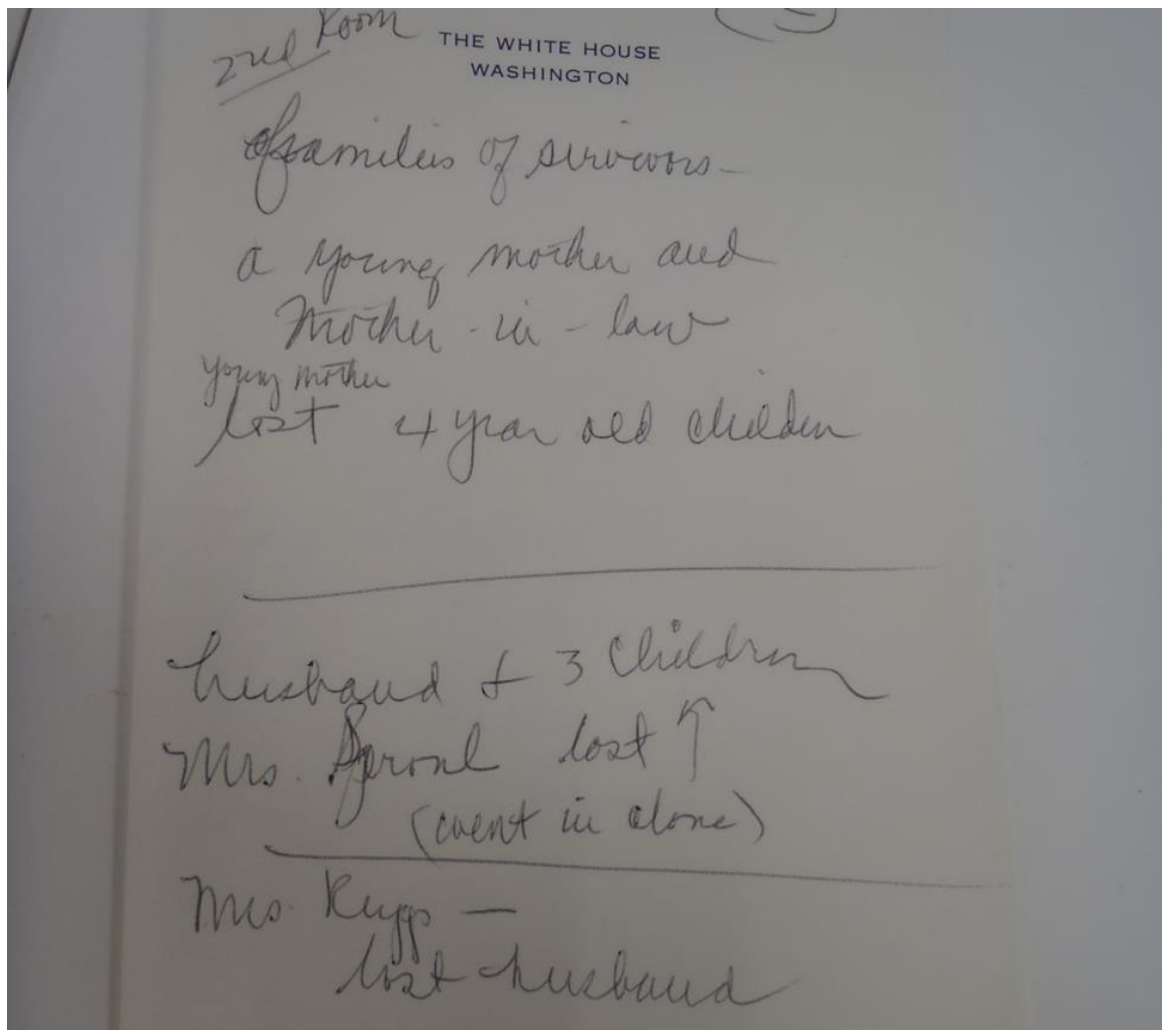 2nd Room
THE WHITE HOUSE
WASHINGTON
families of survivors -
a young mother and
Mother - in - law
young mother
lost 4 year old children
husband + 3 Children
Mrs. Sproul lost ↑
(went in alone)
Mrs. Rupps —
lost husband